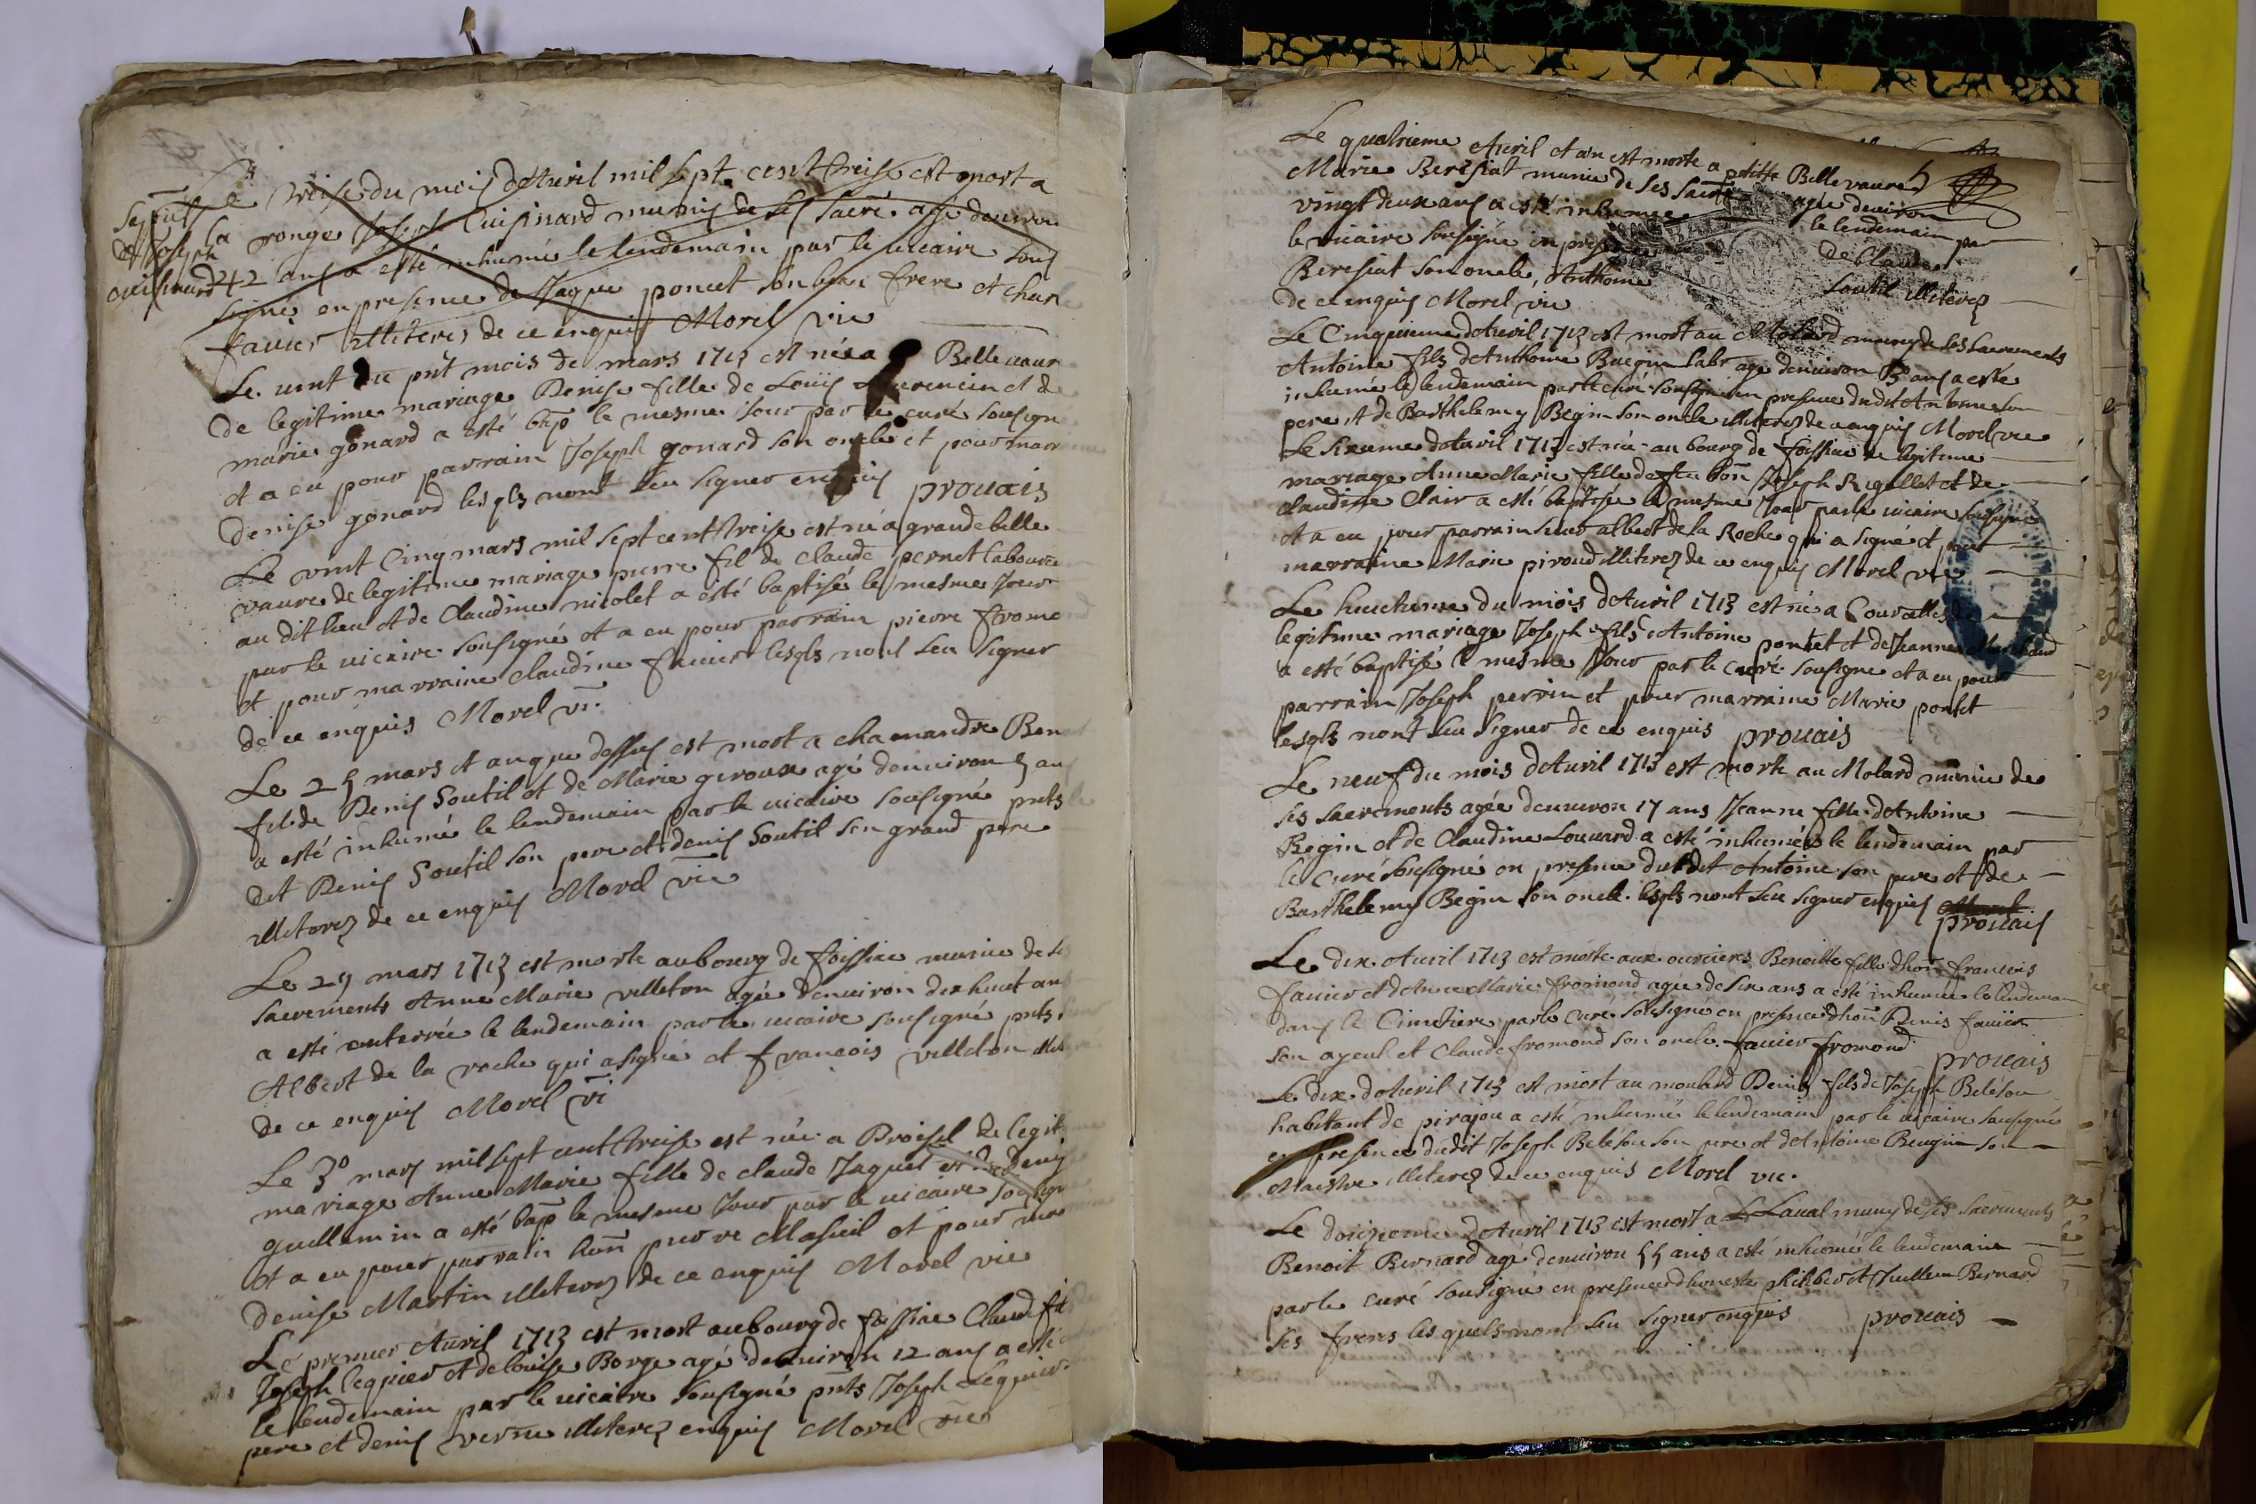 Le treise du mois dAuril mil sept cent treise est mort a
la ronge Joseph Cuisinard munis de ses sacre. agé denuiron
42 ans a esté inhumé le lendemain par le uicaire sous
signé en presence de Jaque poncet son beau frere et charle
fauier illiterés de ce enquis Morel vic
sepult
de Joseph
cuisinard
Le uint du pnt mois de mars 1713 est née a Belleuaur
de legitime mariage Denise fille de Loüis et de
marie gonard a esté bap le mesme jour par le curé sousigne
et a eu pour parrain Joseph gonard son oncle et pour marr
denise gonard lesqls nont seu signer enquis prouais
Le uint cinq mars mil sept cent treise est né a grande belle
vaure de legitime mariage pierre fil de claude pernet laboure
au dit lieu et de Claudine nicolet a esté baptisé le mesme Jour
par le uicaire sousigné et a eu pour parrain pierre fromo
et pour marraine Claudine fauier lesqls nont seu signer
de ce enquis Morel vi.
Le 25 mars et an que dessus est mort a chamandre Ben
fil de Denis Soutil et de Marie giroux agé denuiron 5 ans
a esté inhumé le lendemain par le uicaire sousigné pnts le
dit Denis Soutil son pere et denis Soutil son grand pere
illiterez de ce enquis Morel vic
Le 29 mars 1713 est morte au bourg de foissiac munie de se
sacrements Anne Marie velleton agée denuiron dix huict ans
a esté enterrée le lendemain par le uicaire sousigné pnts
Albert de la roche qui a signé et francois velleton illite
de ce enquis Morel vi
Le 30 mars mil sept cent treise est née a Broisel de legit
mariage Anne Marie fille de claude Jaquet et de Deny
guillemin a esté bap le mesme Jour par le uicaire sousigne
et a eu pour parrain honn pierre Masuil et pour mar
denise Martin illiterez de ce enquis Morel vic
Le premier Auril 1713 est mort au bourg de foissiac Claude fil
Joseph lequier et de louise Borge agé denuiron 12 ans a esté
le lendemain par le uicaire sousigné pnts Joseph Lequier
pere et denis verne illiterez enquis Morel vic
Le quatrieme Auril et an est morte a petitte Belleuaure
Marie Beresiat munie de ses sacre agée denuiron
vingt deux ans a esté inhumée le lendemain par
le uicaire sousigné en presence de Claude
Beresiat son oncle, Anthoine Soutil illiterez
de ce enquis Morel vic
Le Cinquieme dAuril 1713 est mort au Molard muny de ses sacrements
Antoine fils dAnthoine Buegin labr agé denuiron ans a esté
inhumé le lendemain par le curé sousigné en presence dudit Antoine son
pere et de Barthelemy Begin son oncle illiterez de ce enquis Morel vic
Le sixieme dAuril 1713 est née au bourg de foissiac de legitime
mariage Anne Marie fille de feu hon Joseph Rigollet et de
claudine Clair a esté baptisée le mesme Jour par le uicaire sousigné
et a eu pour parrain sieur albert de la Roche qui a signé et pour
marraine Marie piroud illiterez de ce enquis Morel vic
Le huictieme du mois dAuril 1713 est né a Courcelles de
legitime mariage Joseph fils dAntoine pontet et de Jeanne
a esté baptisé le mesme Jour par le curé sousigne et a eu pour
parrain Joseph perrin et pour marraine Marie pontet
lesqls nont seu signer de ce enquis prouais
Le neuf du mois dAuril 1713 est morte au Molard munie de
ses sacrements agée denuiron 17 ans Jeanne fille dAntoine
Begin et de Claudine Louuard a esté inhumée le lendemain par
le curé sousigné en presence dudit Antoine son pere et de
Barthelemy Begin son oncle lesqls nont seu signer enquis
prouais
Le dix Auril 1713 est morte aux ouriers Benoitte fille dhon francois
fauier et dAnne Marie fromond agée de six ans a esté inhumée le lendemain
dans le Cimetiere par le curé sousigné en presence dhon Denis fauier
son ayeul et Claude fromond son oncle. fauier fromond prouais
Le dix dAuril 1713 est mort au moulard Denis fils de Joseph Belesou
habitant de pirajou a esté inhumé le lendemain par le uicaire sousigné
en presence dudit Joseph Belesou son pere et dAntoine Beugin son
Maistre illiterez de ce enquis Morel vic.
Le douzieme dAuril 1713 est mort a Laual muny de ses sacrements
Benoit Bernard agé denuiron 55 ans a esté inhumé le lendemain
par le curé sousigné en presence dhoneste philibert et Juillien Bernard
ses freres lesquels nont seu signer enquis prouais